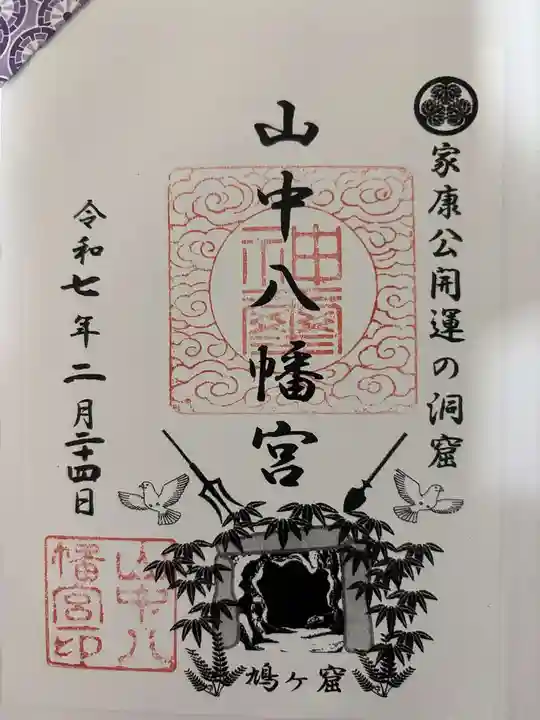 家康公開運の洞窟
山中八幡宮
令和七年二月二十四日
鳩ヶ窟
山中八
幡宮印